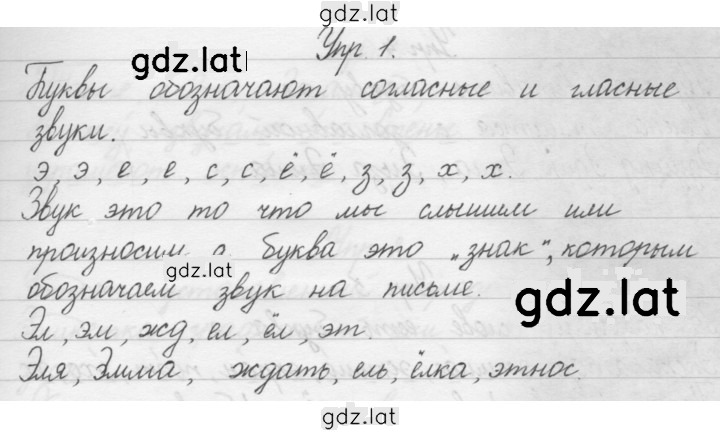 gdz.lat
Упр. 1.
gdz.lat
Буквы обозначают согласные и гласные
звуки.
э, э, е, е, с, с, ё, ё, з, з, х, х.
Звук это то что мы слышим или
произносим а буква это „знак", которым
gdz.lat
обозначаем звук на письме.
gdz.lat
Эл, эм, жд, ел, ёл, эт.
Эля, Эмма, ждать, ель, ёлка, этнос.
gdz.lat